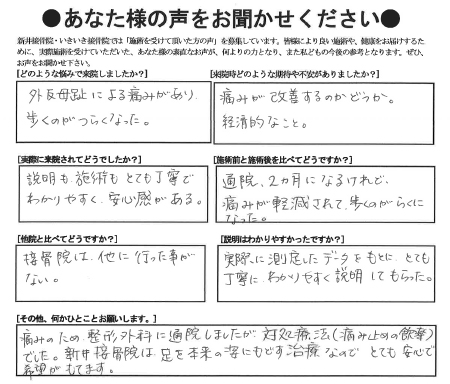 ●あなた様の声をお聞かせください●
新井接骨院・いきいき接骨院では「施術を受けて頂いた方の声」を募集しています。皆様により良い施術や、健康をお届けするた
めに、実際施術を受けていただいた、あなた様の素直なお声が、何よりの力となり、また私どもの今後の参考となります。ぜひ、
お声をお聞かせ下さい。
[どのような悩みで来院しましたか?]
外反母趾による痛みがあり
歩くのがつらくなった。
[来院時どのような期待や不安がありましたか?]
痛みが改善するのかどうか。
経済的なこと。
[実際に来院されてどうでしたか?]
説明も施術もとても丁寧で
わかりやすく、安心感がある。
[施術前と施術後を比べてどうですか?]
通院、2ヵ月になるけれど、
痛みが軽減されて、歩くのがらくに
なった。
[他院と比べてどうですか?]
接骨院は、他に行った事が
ない。
[説明はわかりやすかったですか?]
実際に測定したデータをもとに、とても
丁寧に、わかりやすく説明してもらった。
[その他、何かひとことお願いします。]
痛みのため、整形外科に通院しましたが対処療法(痛み止めの飲薬)
でした。新井接骨院は、足を本来の姿にもどす治療なのでとても安心で
希望がもてます。